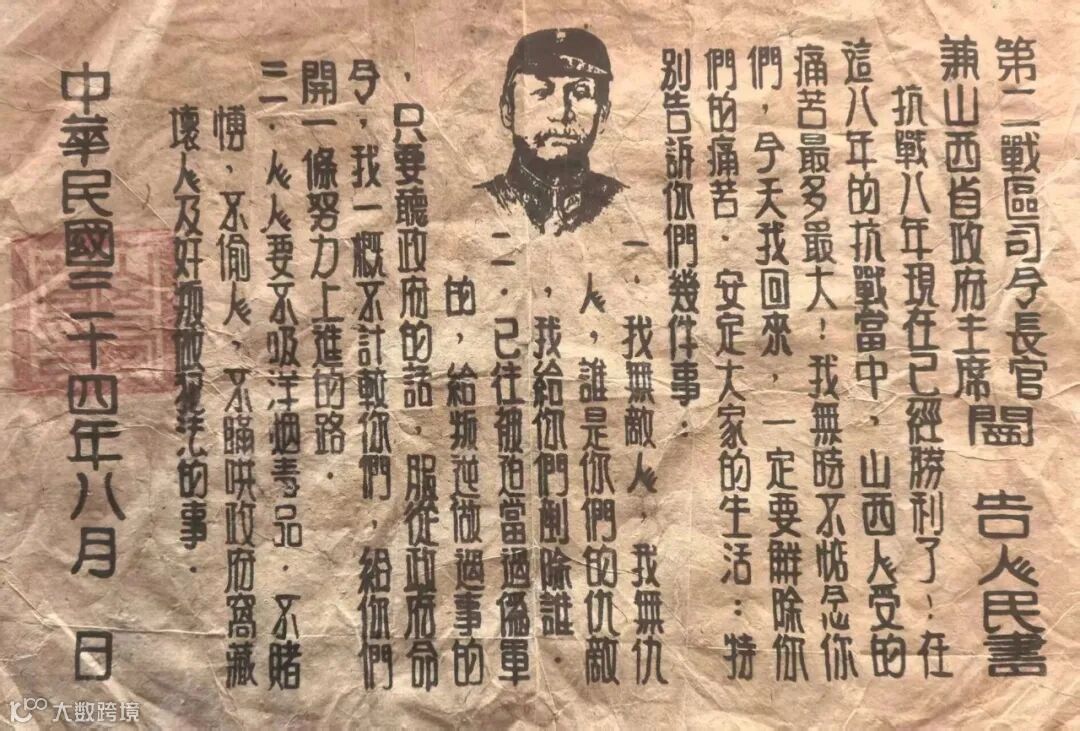 第二戰區司令長官
兼山西省政府主席閻　告人民書
抗戰八年現在已經勝利了！在
這八年的抗戰當中，山西人受的
痛苦最多最大！我無時不惦念你
們，今天我回來，一定要解除你
們的痛苦．安定大家的生活：特
別告訴你們幾件事：
一．我無敵人，我無仇
人，誰是你們的仇敵
，我給你們剷除誰．
二．已往被迫當過僞軍
的，給叛逆做過事的
，只要聽政府的話，服從政府命
令，我一概不計較你們，給你們
開一條努力上進的路．
三．人人要不吸洋烟毒品．不賭
博，不偷人，不瞞哄政府窩藏
壞人及奸叛做犯法的事．
中華民國三十四年八月　日
大数跨境